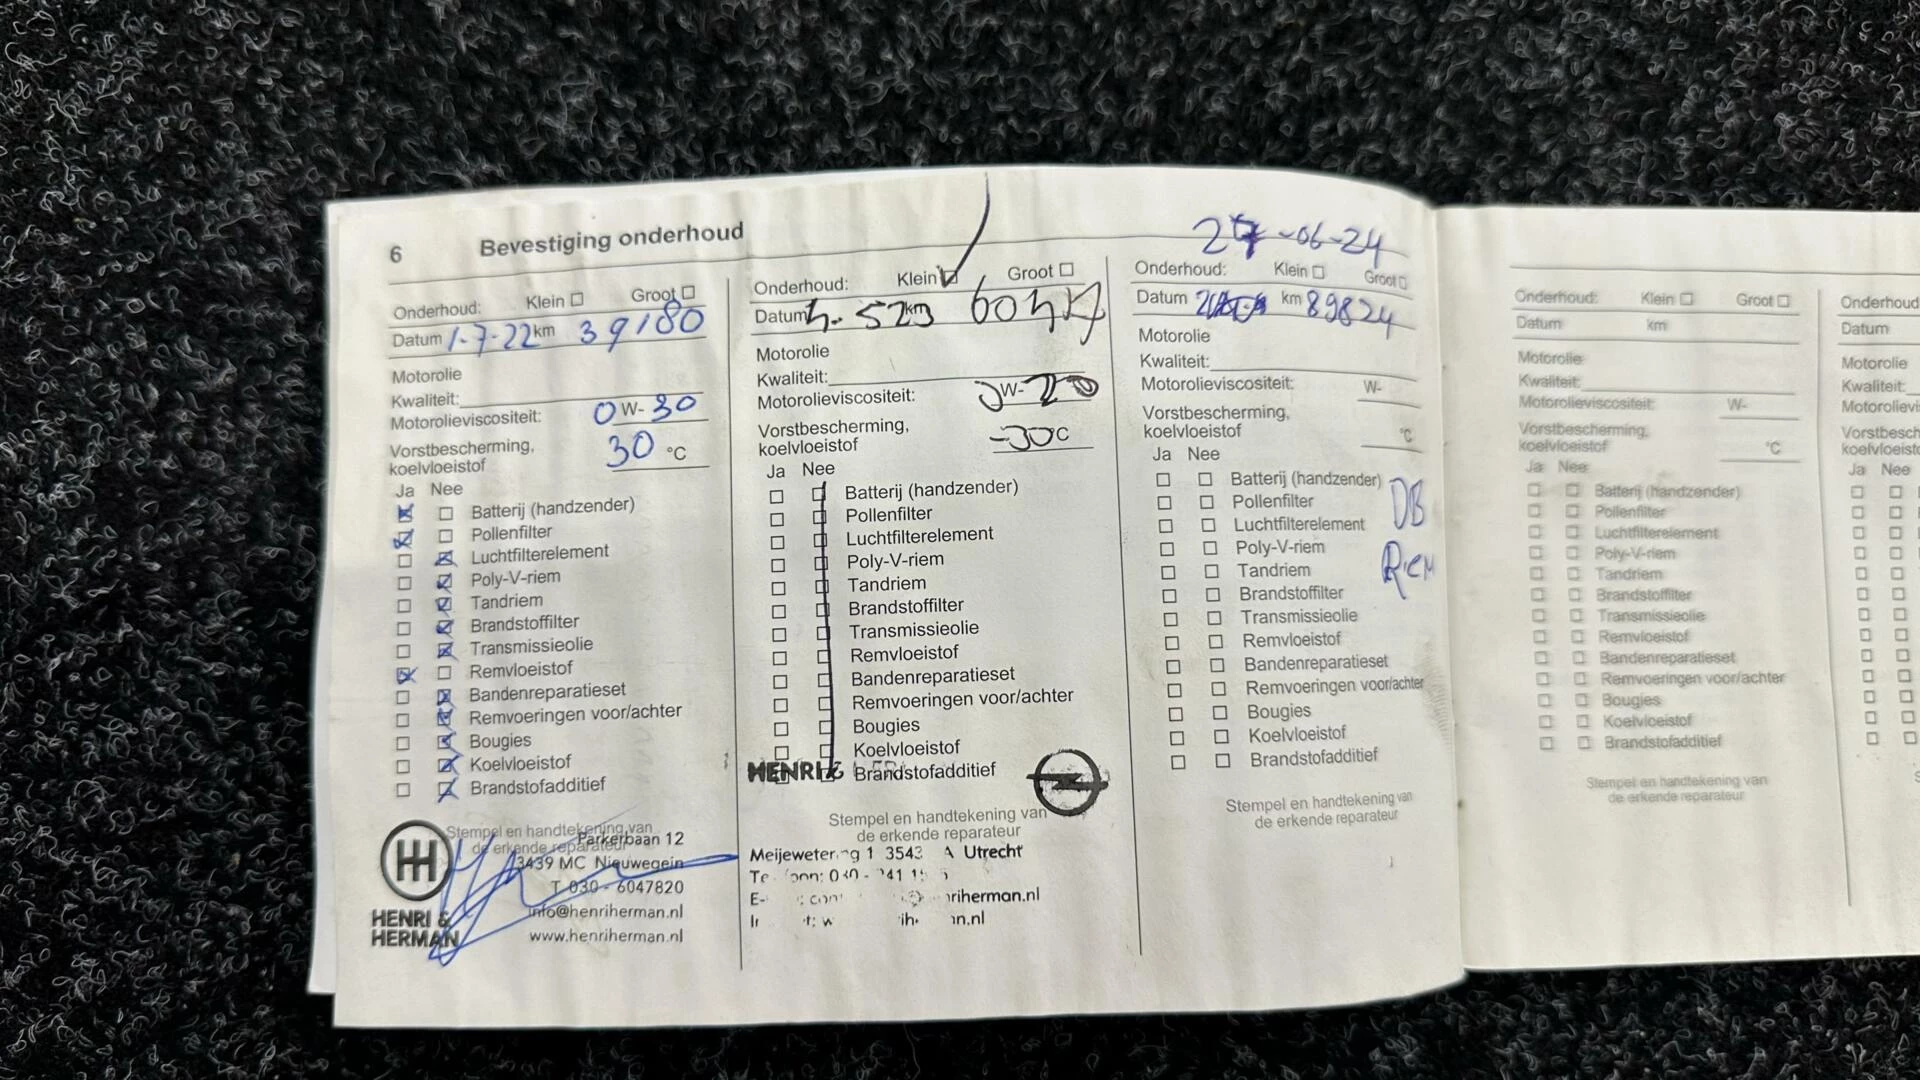 6 Bevestiging onderhoud
Onderhoud: Klein Groot
Datum 1-7-22 km 39180
Motorolie
Kwaliteit:
Motorolieviscositeit: 0 W- 30
Vorstbescherming,
koelvloeistof 30 °C
Ja Nee
Batterij (handzender)
Pollenfilter
Luchtfilterelement
Poly-V-riem
Tandriem
Brandstoffilter
Transmissieolie
Remvloeistof
Bandenreparatieset
Remvoeringen voor/achter
Bougies
Koelvloeistof
Brandstofadditief
Stempel en handtekening van
de erkende reparateur
HENRI &
HERMAN
Parkerbaan 12
3439 MC Nieuwegein
T 030 - 6047820
info@henriherman.nl
www.henriherman.nl
Onderhoud: Klein Groot
Datum km
Motorolie
Kwaliteit:
Motorolieviscositeit: 0W-20
Vorstbescherming,
koelvloeistof -30°C
Ja Nee
Batterij (handzender)
Pollenfilter
Luchtfilterelement
Poly-V-riem
Tandriem
Brandstoffilter
Transmissieolie
Remvloeistof
Bandenreparatieset
Remvoeringen voor/achter
Bougies
Koelvloeistof
Brandstofadditief
HENRI &
Stempel en handtekening van
de erkende reparateur
Utrecht
27-06-24
Onderhoud: Klein Groot
Datum km 89824
Motorolie
Kwaliteit:
Motorolieviscositeit: W-
Vorstbescherming,
koelvloeistof °C
Ja Nee
Batterij (handzender)
Pollenfilter
Luchtfilterelement
Poly-V-riem
Tandriem
Brandstoffilter
Transmissieolie
Remvloeistof
Bandenreparatieset
Remvoeringen voor/achter
Bougies
Koelvloeistof
Brandstofadditief
DB
Riem
Stempel en handtekening van
de erkende reparateur
Onderhoud: Klein Groot
Datum km
Motorolie
Kwaliteit:
Motorolieviscositeit: W-
Vorstbescherming,
koelvloeistof °C
Ja Nee
Batterij (handzender)
Pollenfilter
Luchtfilterelement
Poly-V-riem
Tandriem
Brandstoffilter
Transmissieolie
Remvloeistof
Bandenreparatieset
Remvoeringen voor/achter
Bougies
Koelvloeistof
Brandstofadditief
Stempel en handtekening van
de erkende reparateur
Onderhoud
Datum
Motorolie
Kwaliteit:
Ja Nee